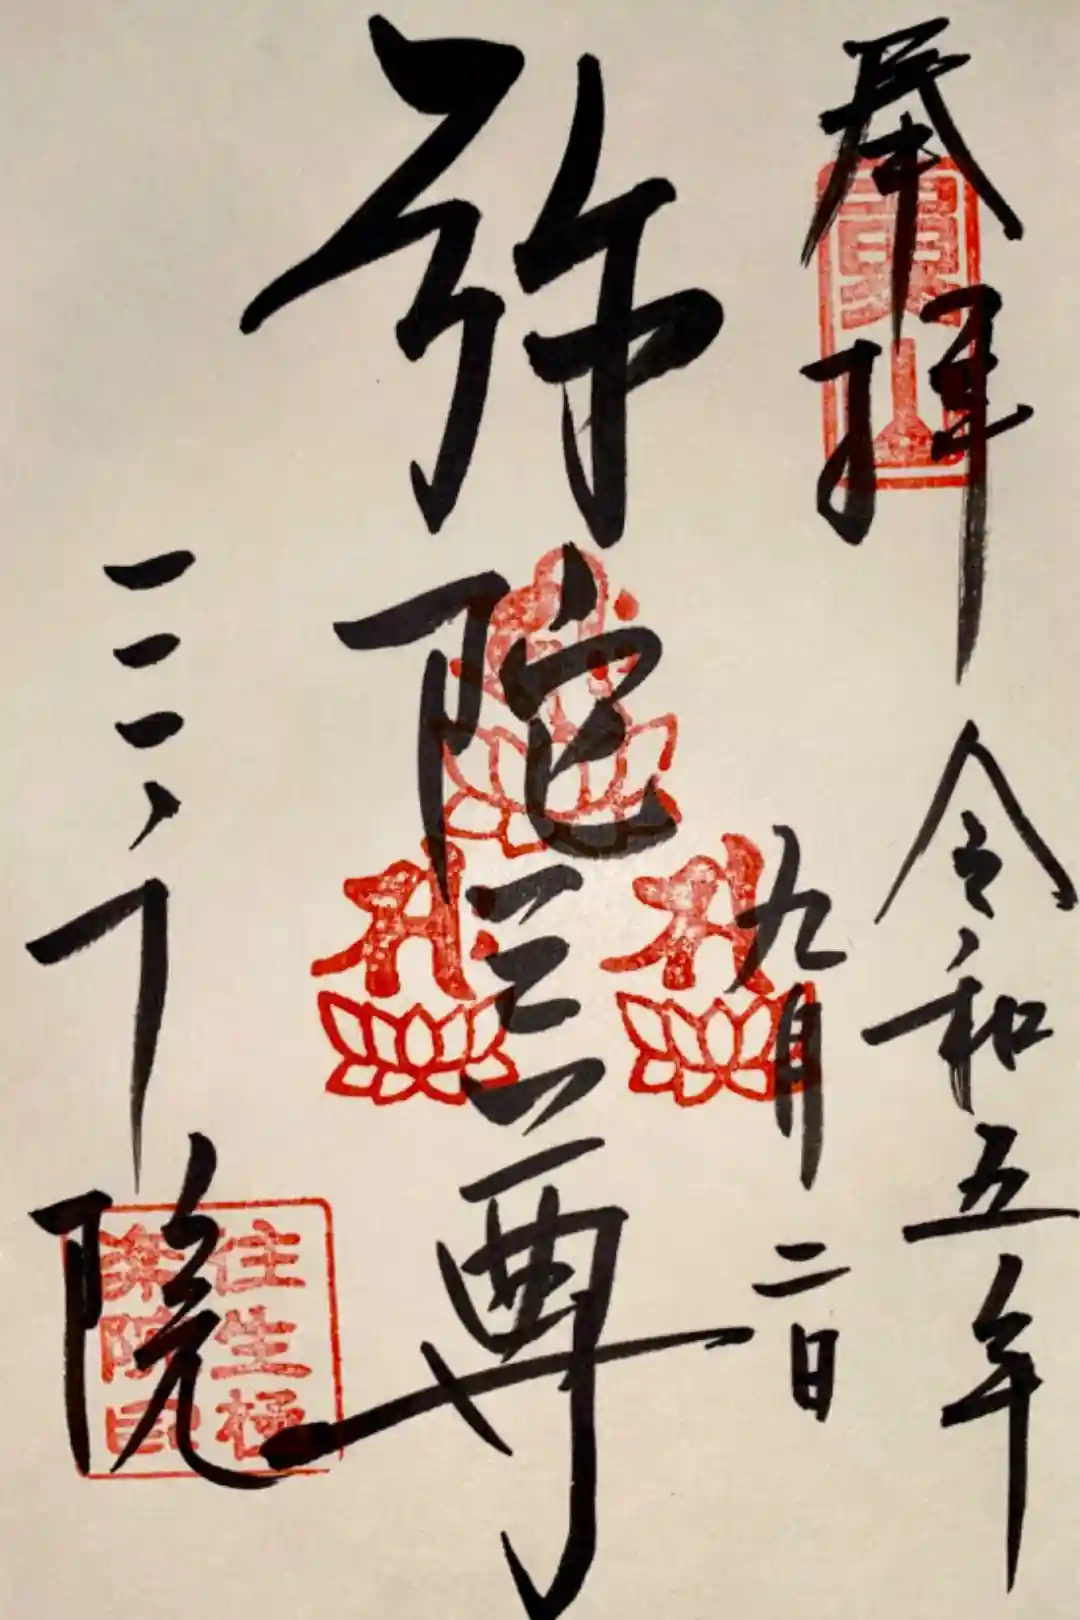 奉拝 令和五年
九月二日
弥陀三尊
三千院
往生極
楽院印